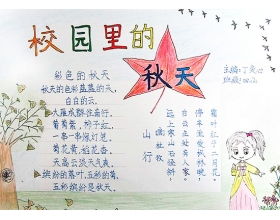 校园里的
秋天
主编：丁
班级：
彩色的秋天
秋天的色彩是蓝的天，
白白的云。
大雁成群往南行。
葡萄紫，柿子红，
一串一串
菊花黄，稻花香，
天高云淡天气爽。
缤纷的落叶，五彩的菊，
五彩缤纷是秋天。
山行
杜牧
远上寒山石径斜，
白云生处有人家。
停车坐爱枫林晚，
霜叶红于二月花。